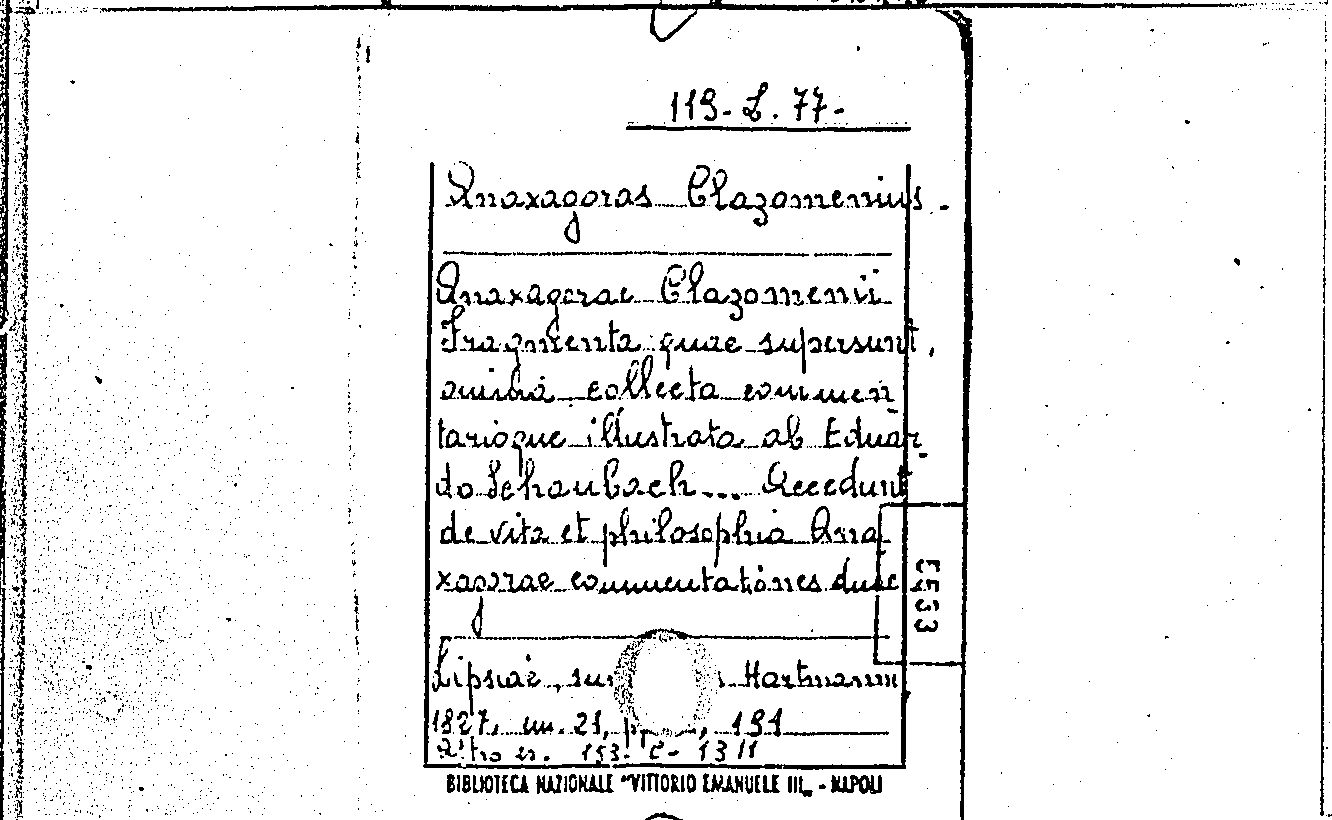 119- L. 77-
Anaxagoras Clazomenius.
Anaxagorae Clazomenii
Fragmenta quae supersunt,
omnia collecta commen
tarioque illustrata ab Eduar
do Schaubach... Accedunt
de vita et philosophia Ana
xagorae commentationes duae
Lipsiae, Hartmann
1827, in. 21, 191
153- C- 1311
5533
BIBLIOTECA NAZIONALE "VITTORIO EMANUELE III„ - NAPOLI